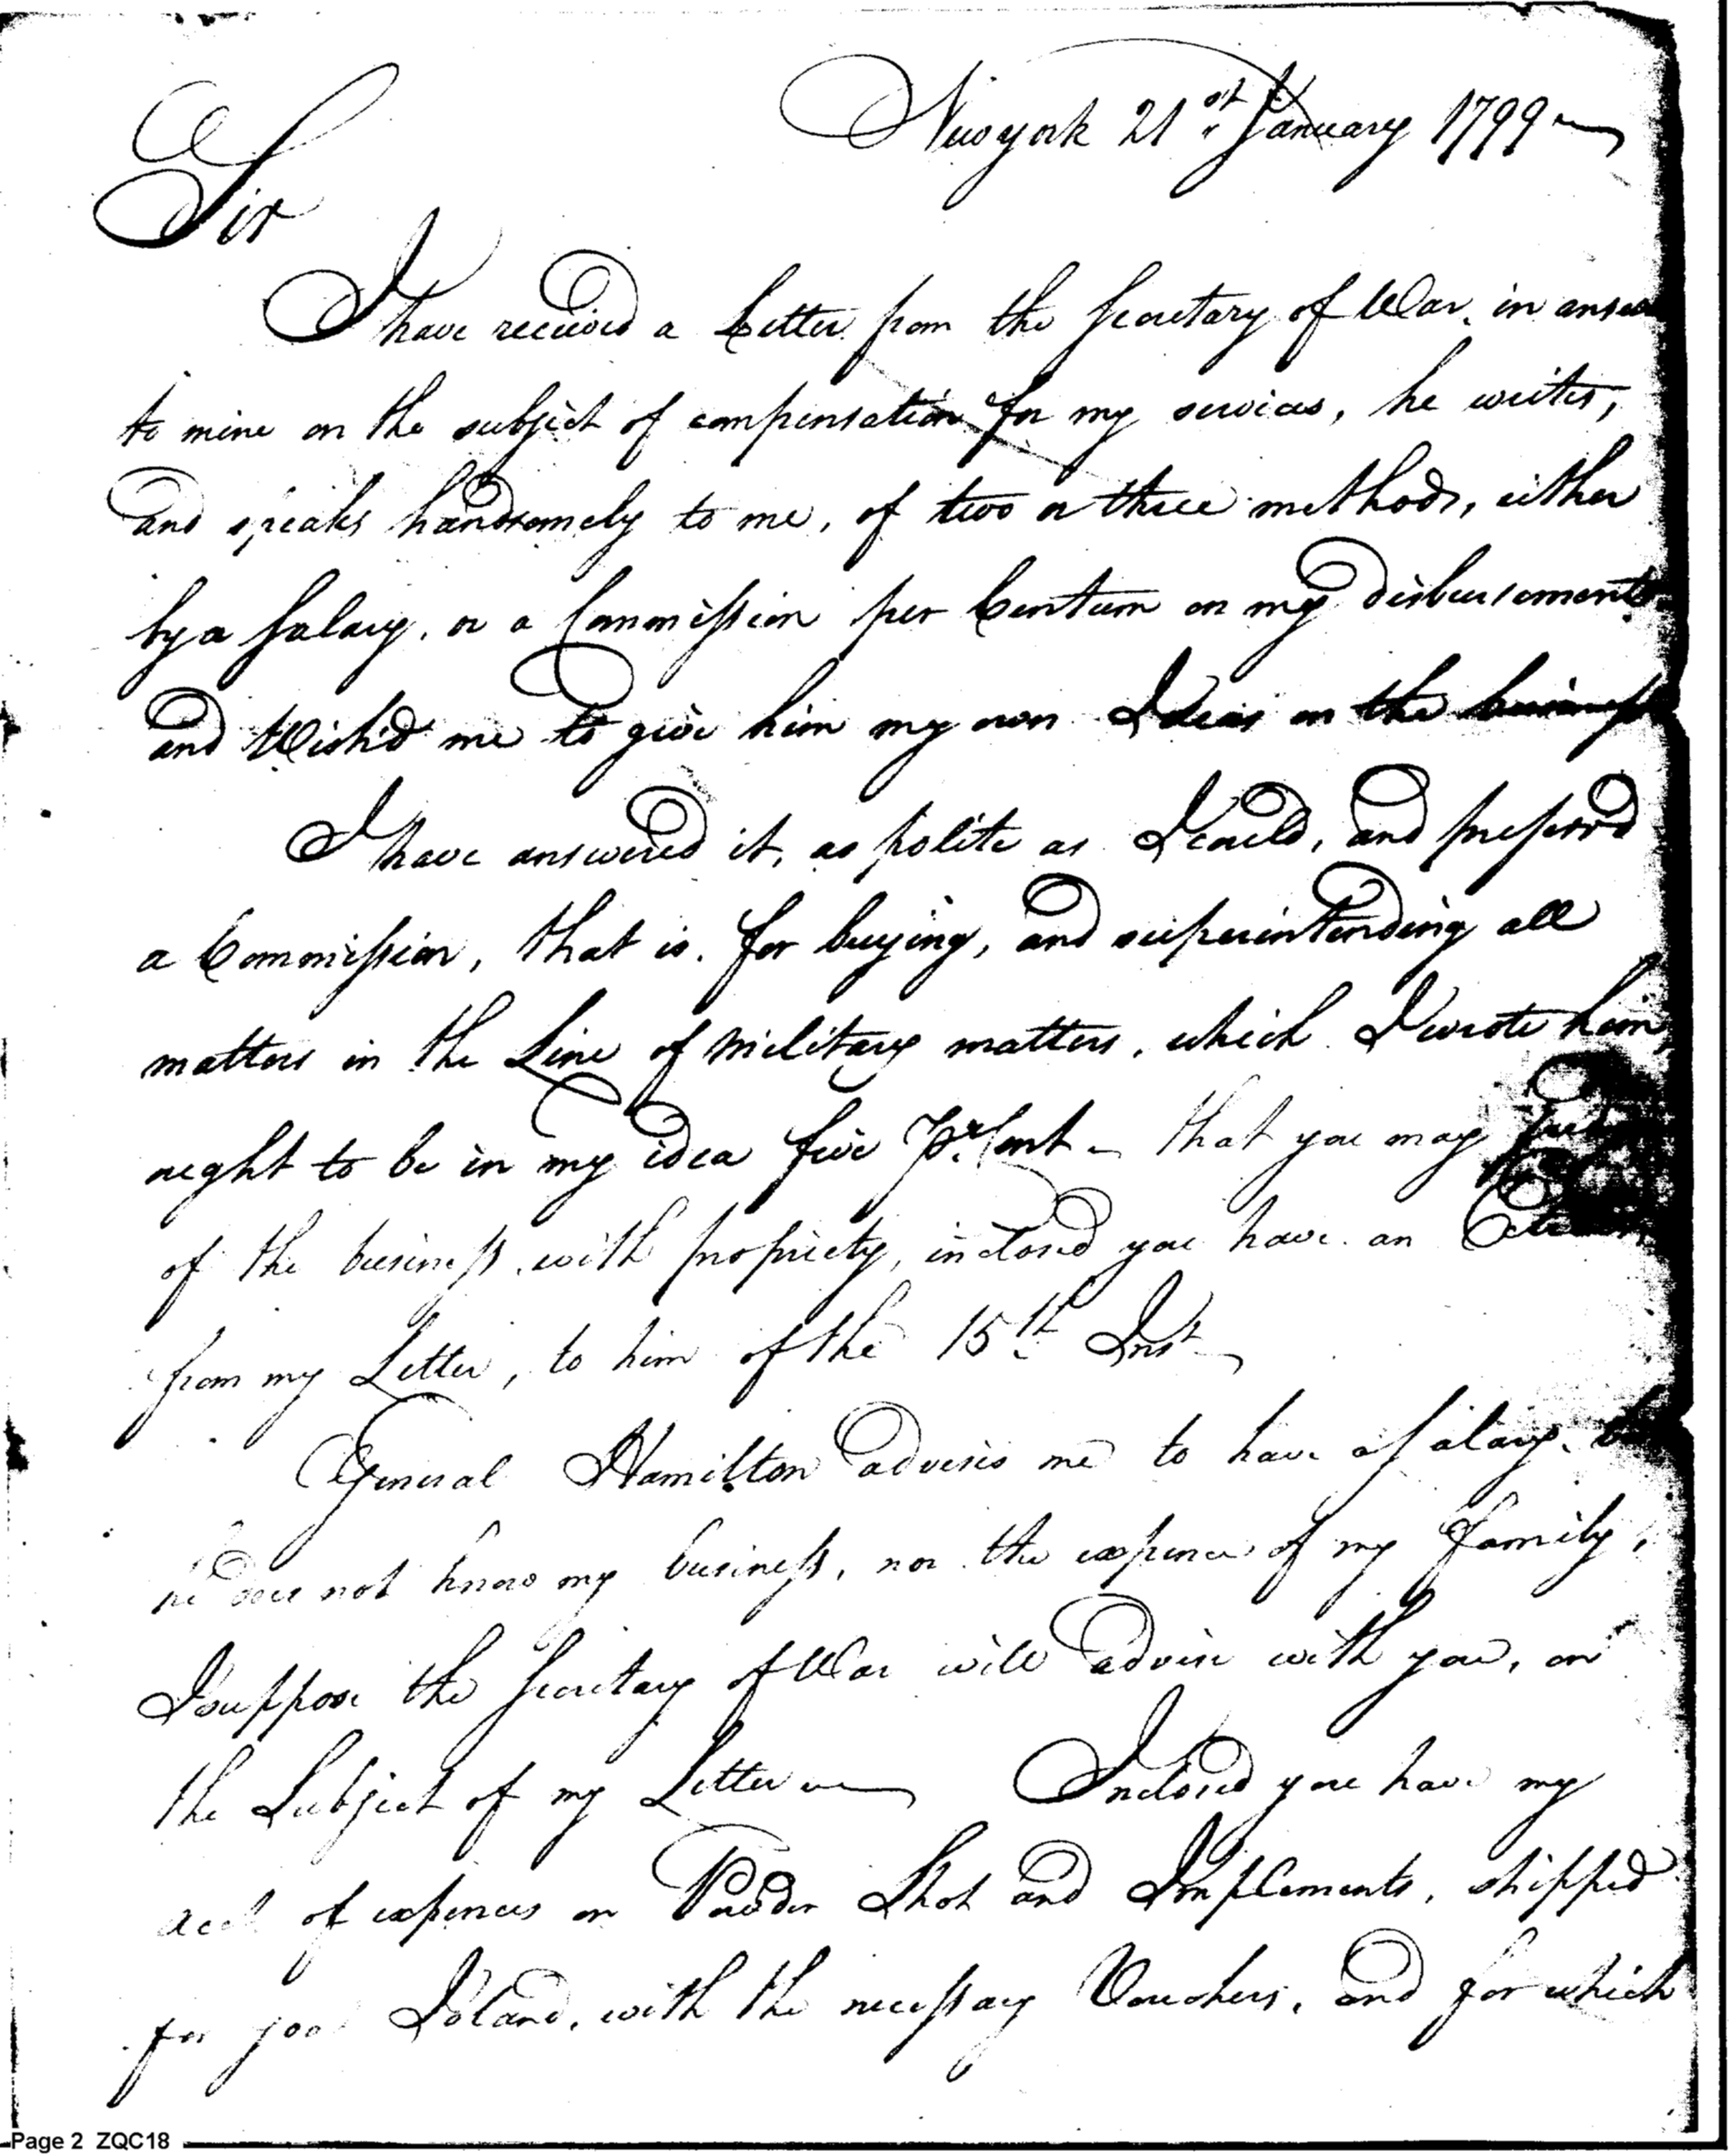 Newyork 21st January 1799
Sir
I have received a Letter from the Secretary of War, in
to mine on the subject of compensation for my services, he writes,
and speaks handsomely to me, of two or three methods, either
by a Salary, or a Commission per Centum on my disbursements
and Wish'd me to give him my own Ideas on the business
I have answered it, as polite as I could, and preferrd
a Commission, that is, for buying, and superintending all
matters in the Line of Military matters, which I wrote him,
ought to be in my idea five Pr. Cent - that you may
of the business with propriety, inclosed you have an
from my Letter, to him of the 15th Inst
General Hamilton advises me to have a Salary,
he does not know my business, nor the expence of my Family,
I suppose the Secretary of War will advise with you, on
the Subject of my Letter Inclosed you have my
acct of expences on Powder Shot and Implements, shipped
for Island, with the necessary Vouchers, and for which
Page 2 ZQC18